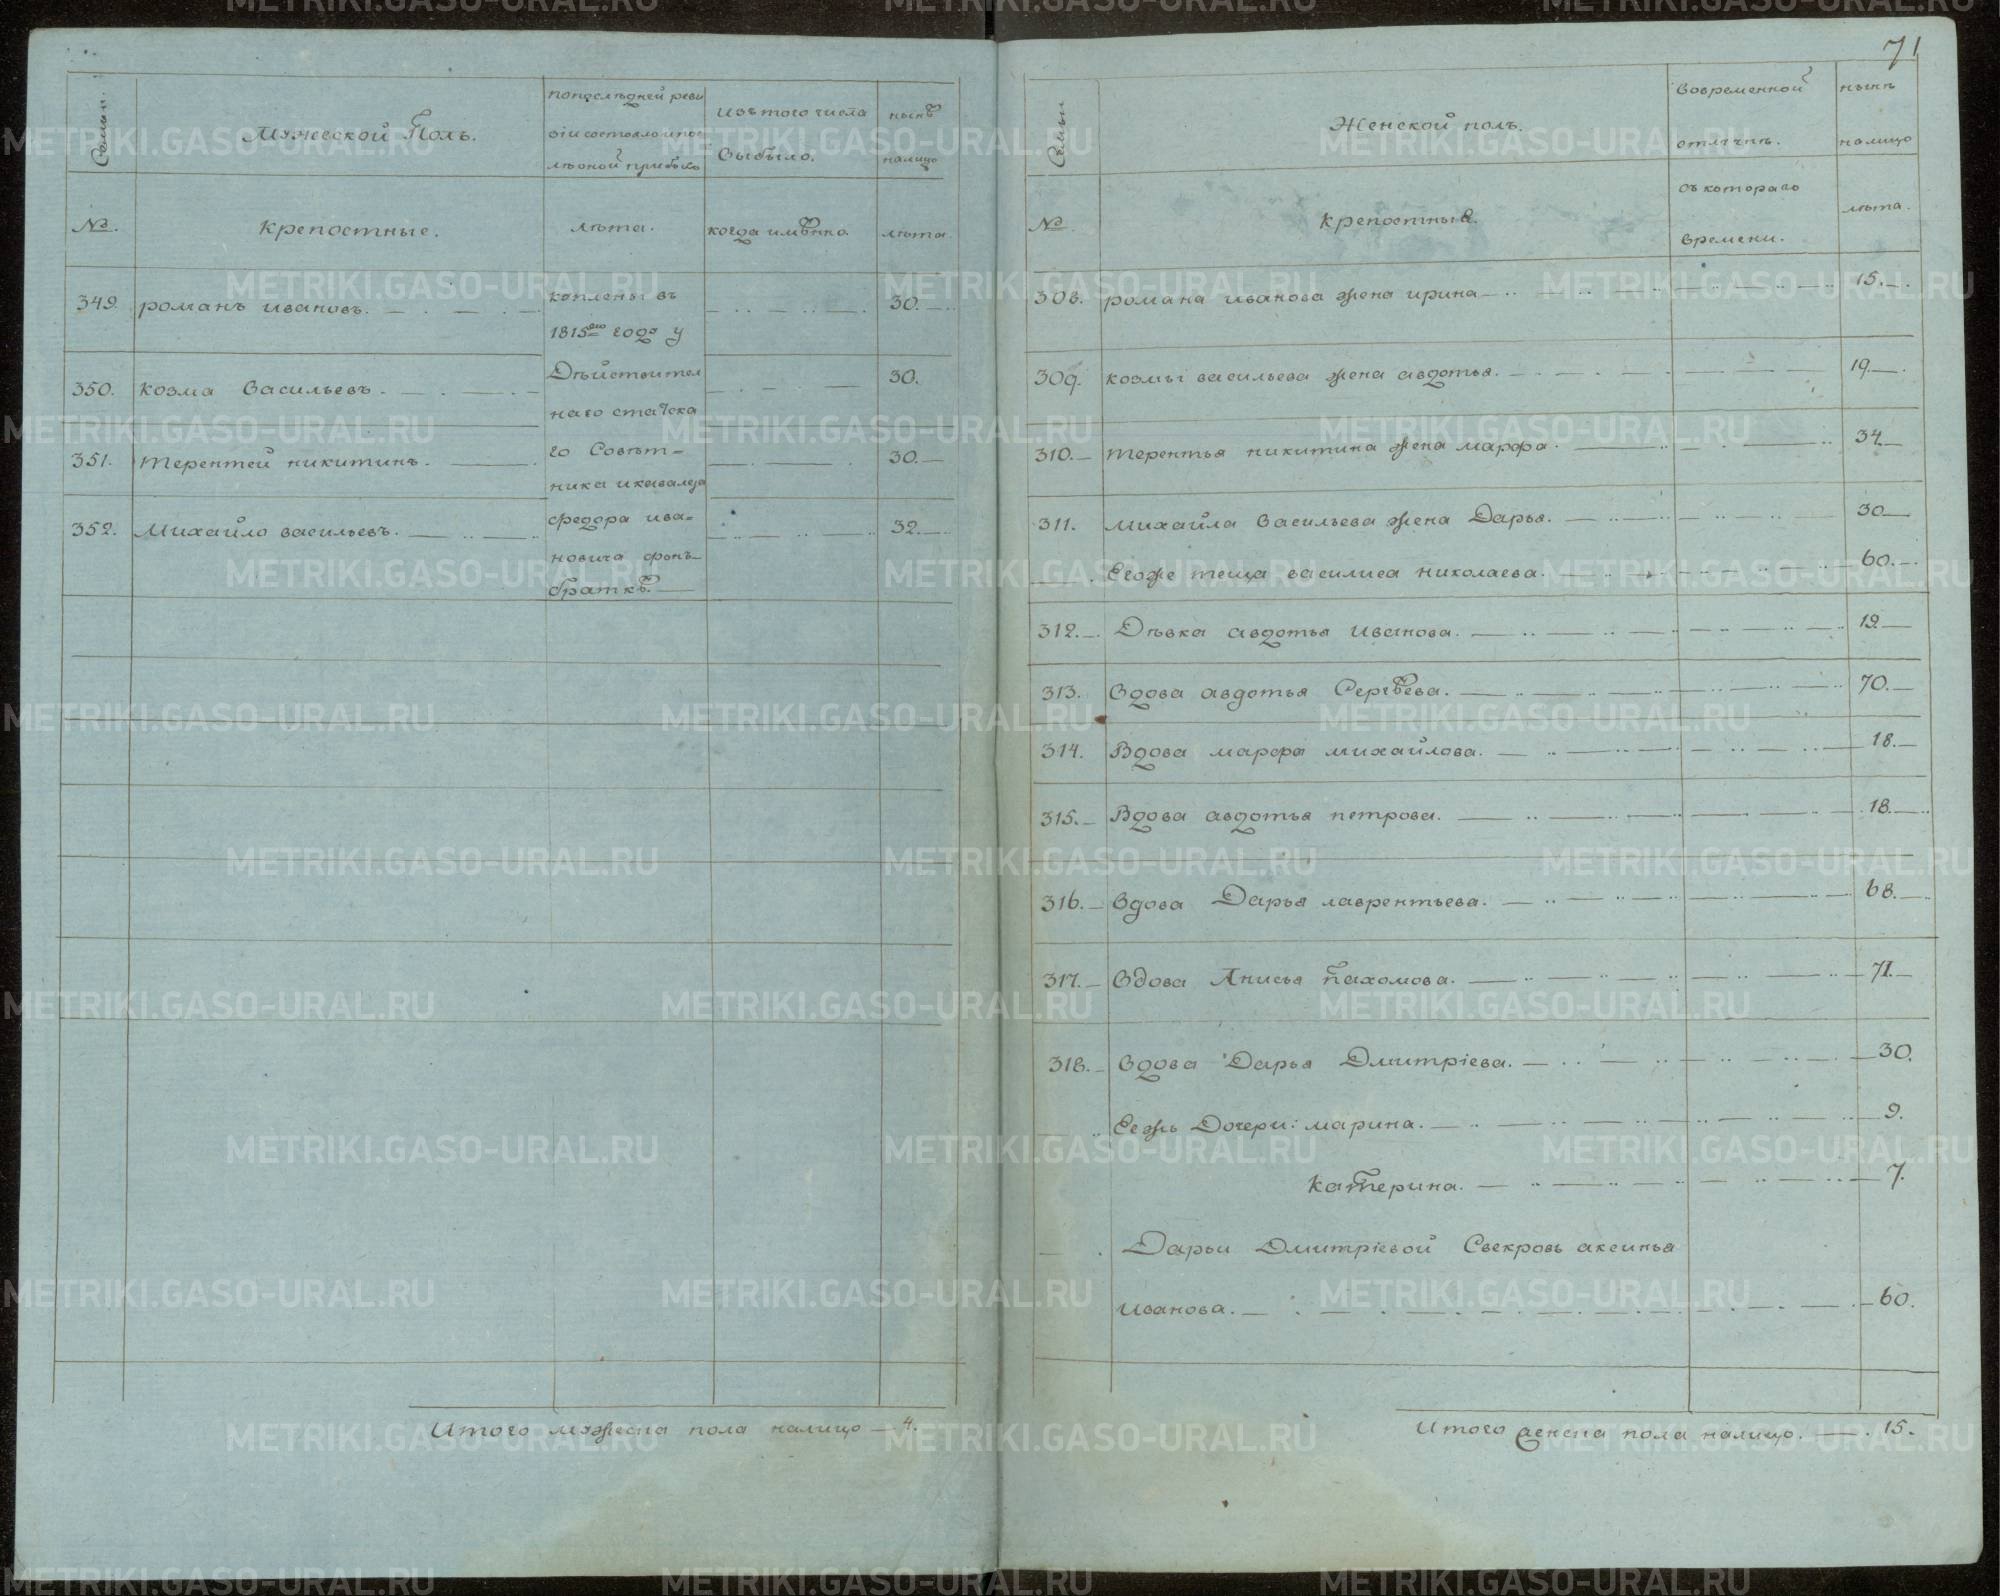 71
Семьи.
Мужеской Полъ.
попослѣдней реви
зіи состояло и пос
лѣ оной прибыло
Изъ того числа
Выбыло.
нынѣ
налицо
№.
Крепостные.
лѣта.
когда имѣнно
лѣта.
349. романъ ивановъ. 30.
куплены въ
1815го году у
350. козма Васильевъ. 30.
Дѣйствител
наго статска
351. терентей никитинъ. 30.
го Совѣт=
ника и кавалера
352. Михайло васильевъ. 32.
федора ива=
новича фонъ
браткѣ.
Итого мужеска пола налицо 4.
Семьи
Женской полъ.
Вовременной
отлучкѣ.
нынѣ
налицо
№
Крепостныя.
съ котораго
Времени.
лѣта.
308. романа иванова жена ирина 15.
309. козмы васильева жена авдотья. 19.
310. терентья никитина жена марфа. 34
311. михайла Васильева жена Дарья. 30
Егоже теща василиса николаева. 60.
312. Дѣвка авдотья Иванова. 19.
313. Вдова авдотья Сергѣева. 70.
314. Вдова марфа михайлова. 18.
315. Вдова авдотья петрова. 18.
316. Вдова Дарья лаврентьева. 68.
317. Вдова Анисья Пахомова. 71.
318. Вдова Дарья Дмитріева. 30.
Еежь Дочери: марина. 9.
катерина. 7.
Дарьи Дмитріевой Свекровь аксинья
Иванова. 60.
Итого женска пола налицо. 15.
METRIKI.GASO-URAL.RU